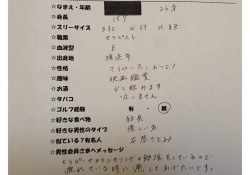 ●なまえ・年齢 26才
●身長 157
●スリーサイズ B 90 W 59 H 88
●職業 セラピスト
●血液型 B
●出身地 横浜市
●性格
●趣味 映画鑑賞
●お酒 少し飲めます
●タバコ 吸いません
●ゴルフ経験 有・無
●好きな食べ物 和食
●好きな男性のタイプ 優しい方
●似ている?有名人 石原さとみ
●男性会員さまへメッセージ
セラピーやカウンセリングの勉強をしているので
疲れている時に癒してあげたいです。